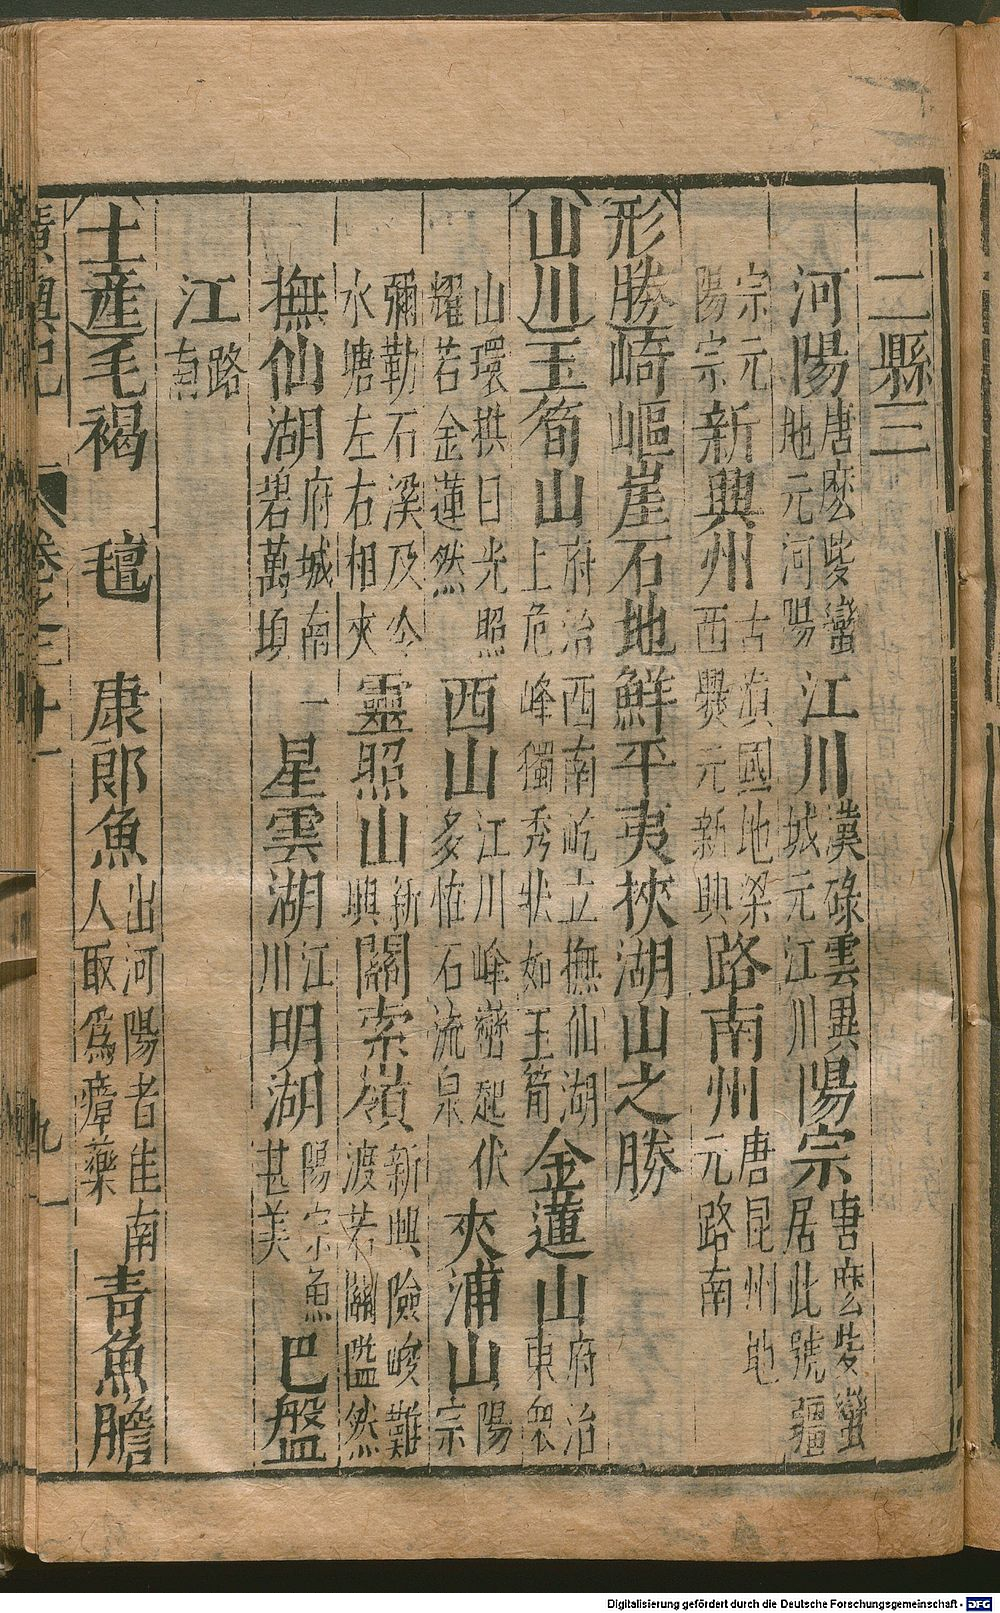 二縣三
河陽唐麽些蠻地元河陽江川漢碌雲異城元江川陽宗唐麽些蠻居此號彊
宗元陽宗新興州古滇國地梁西爨元新興路南州唐昆州地元路南
形勝崎嶇崖石地鮮平夷挾湖山之勝
山川玉筍山府治西南屹立撫仙湖上危峰獨秀狀如玉筍金蓮山府治東衆
山環拱日光照耀若金蓮然西山江川峰巒起伏多怪石流泉夾浦山陽宗
彌勒石溪及令水塘左右相夾靈照山新興關索嶺新興險峻難渡若關隘然
撫仙湖府城南一碧萬頃星雲湖江川明湖陽宗魚甚美巴盤
江路南
土產毛褐 氊 康郎魚出河陽者佳南人取爲瘴藥青魚膽
廣輿記 卷之二十一
Digitalisierung gefördert durch die Deutsche Forschungsgemeinschaft - DFG